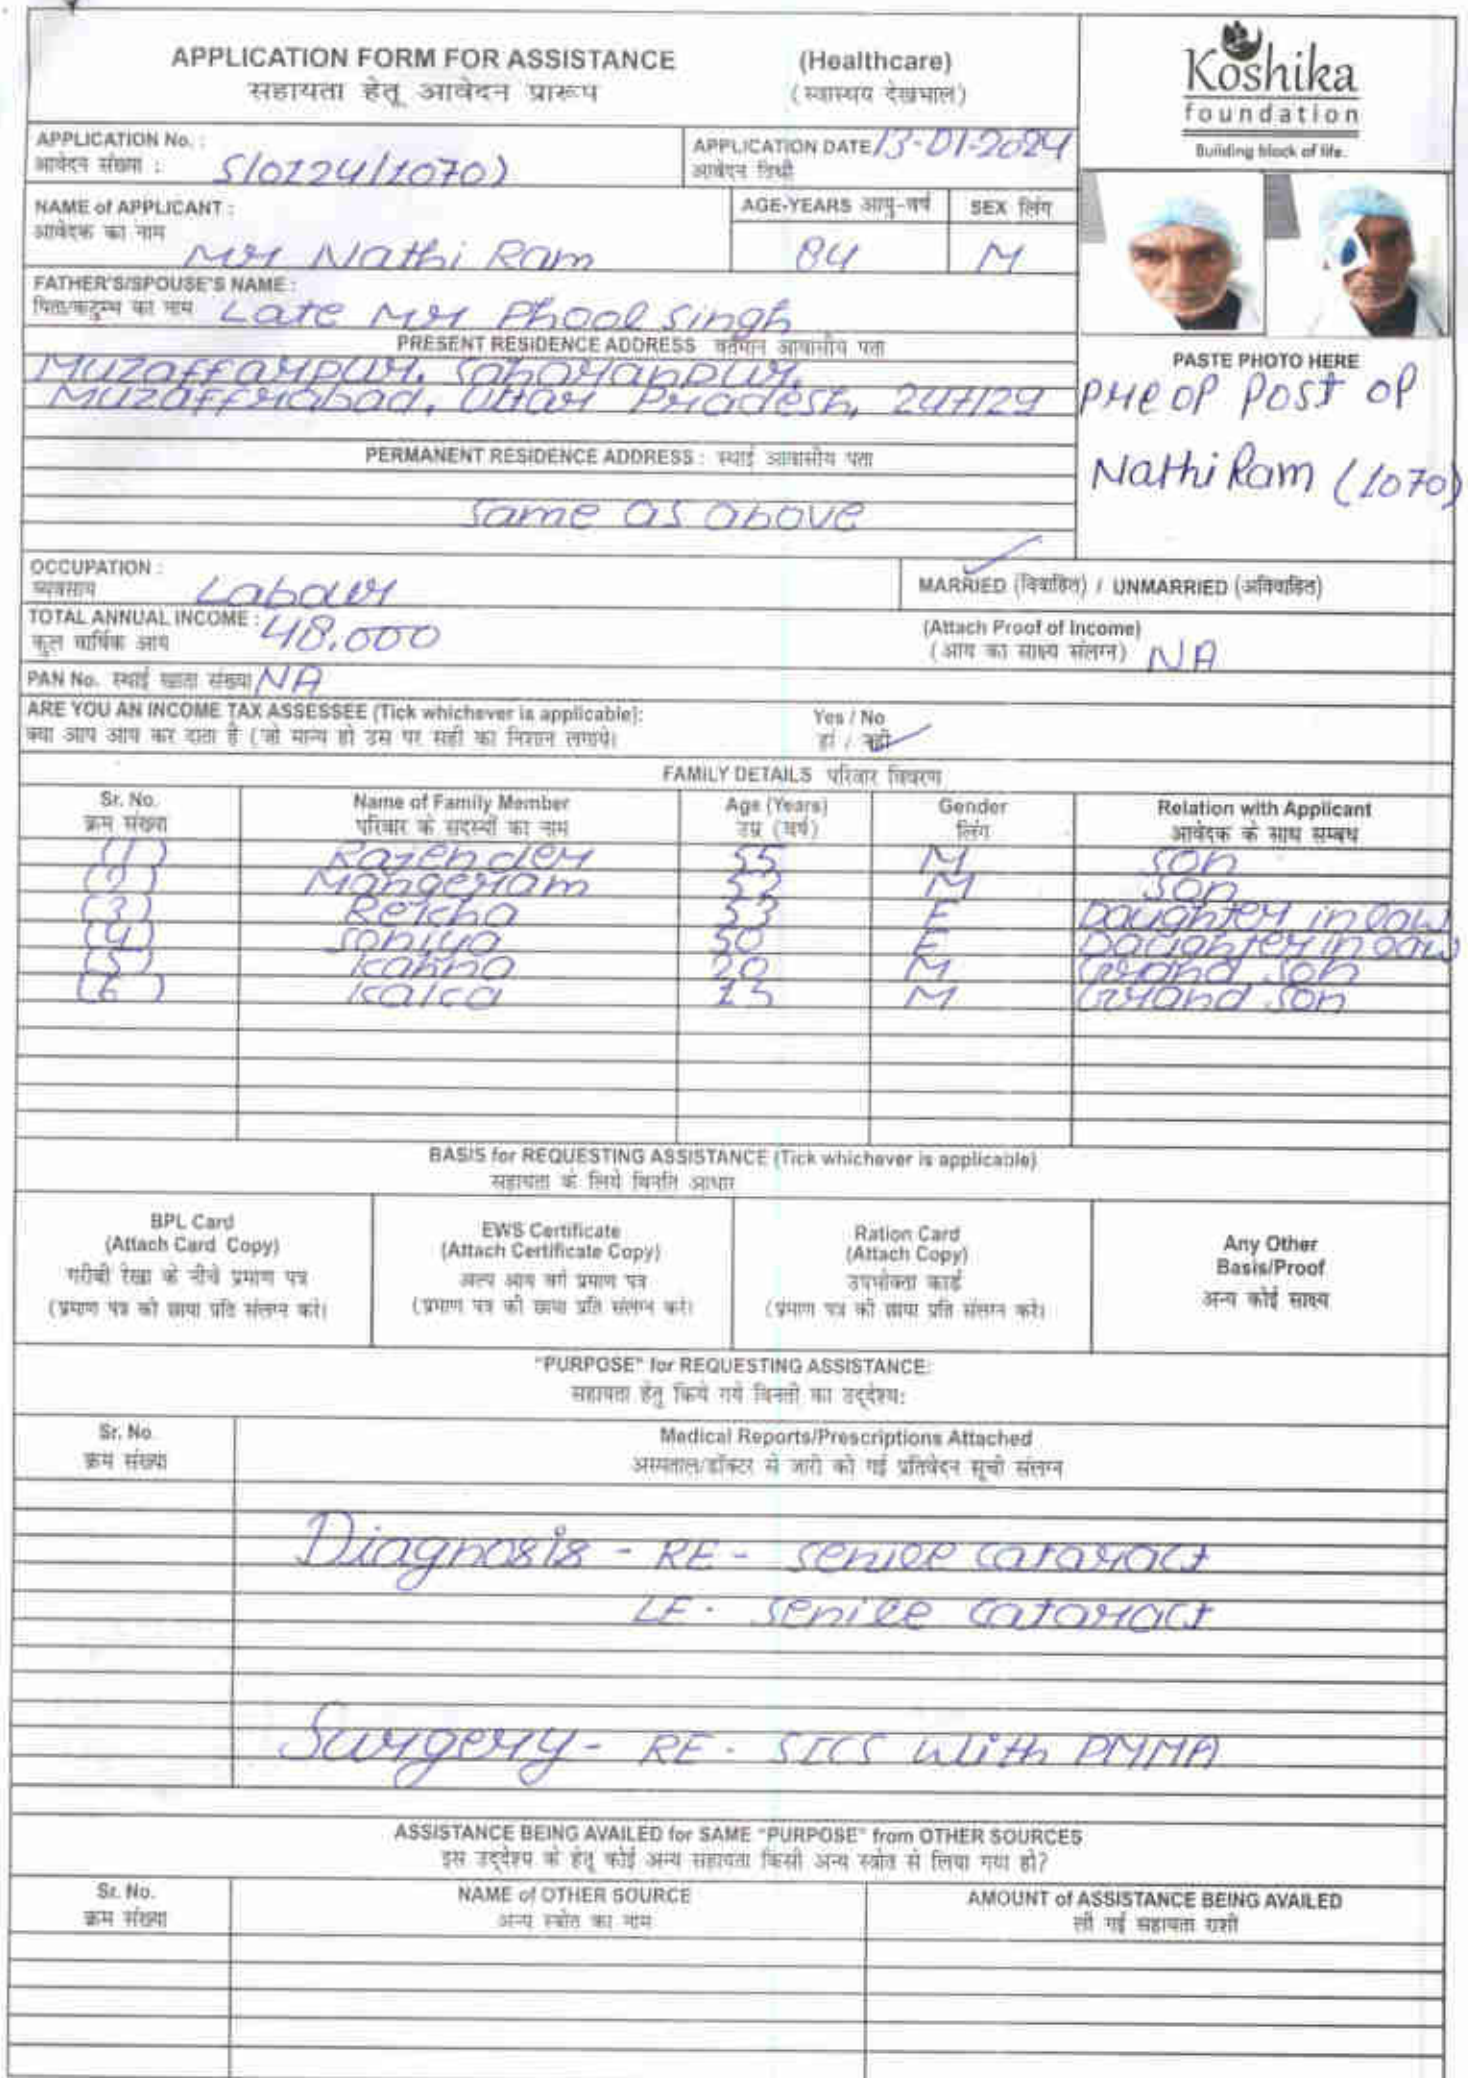 APPLICATION FORM FOR ASSISTANCE (Healthcare)
सहायता हेतू आवेदन प्रारूप (स्वास्थय देखभाल)
Koshika
foundation
Building block of life.
APPLICATION No. :
आवेदन संख्या : S/0124/1070)
APPLICATION DATE 13-01-2024
आवेदन तिथी
NAME of APPLICANT :
आवेदक का नाम Mr Nathi Ram
AGE-YEARS आयु-वर्ष 84
SEX लिंग M
FATHER'S/SPOUSE'S NAME :
पिता/कटुम्ब का नाम Late Mr Phool Singh
PRESENT RESIDENCE ADDRESS वर्तमान आवासीय पता
Muzaffarpur, Saharanpur,
Muzaffrabad, Uttar Pradesh, 247129
PASTE PHOTO HERE
Pre op Post op
Nathi Ram (1070)
PERMANENT RESIDENCE ADDRESS : स्थाई आवासीय पता
Same as above
OCCUPATION :
व्यवसाय Labour
MARRIED (विवाहित) / UNMARRIED (अविवाहित)
TOTAL ANNUAL INCOME : 48,000
कुल वार्षिक आय
(Attach Proof of Income)
(आय का साक्ष्य संलग्न) NA
PAN No. स्थाई खाता संख्या NA
ARE YOU AN INCOME TAX ASSESSEE (Tick whichever is applicable): Yes / No
क्या आप आय कर दाता है (जो मान्य हो उस पर सही का निशान लगाये। हां / नही
FAMILY DETAILS परिवार विवरण
Sr. No. Name of Family Member Age (Years) Gender Relation with Applicant
क्रम संख्या परिवार के सदस्यों का नाम उम्र (वर्ष) लिंग आवेदक के साथ सम्बध
(1) Rajender 55 M Son
(2) Mangeram M Son
(3) 53 F Daughter in law
(4) Soniya 50 F Daughter in law
(5) 20 M Grand Son
(6) M Grand Son
BASIS for REQUESTING ASSISTANCE (Tick whichever is applicable)
सहायता के लिये विनति आधार
BPL Card
(Attach Card Copy)
गरीबी रेखा के नीचे प्रमाण पत्र
(प्रमाण पत्र की छाया प्रति संलग्न करे।
EWS Certificate
(Attach Certificate Copy)
अल्प आय वर्ग प्रमाण पत्र
(प्रमाण पत्र की छाया प्रति संलग्न करे।
Ration Card
(Attach Copy)
उपभोक्ता कार्ड
(प्रमाण पत्र की छाया प्रति संलग्न करे।
Any Other
Basis/Proof
अन्य कोई साक्ष्य
"PURPOSE" for REQUESTING ASSISTANCE:
सहायता हेतु किये गये विनती का उद्देश्य:
Sr. No. Medical Reports/Prescriptions Attached
क्रम संख्या अस्पताल/डॉक्टर से जारी की गई प्रतिवेदन सूची संलग्न
Diagnosis - RE - Senile Cataract
LE - Senile Cataract
Surgery - RE - SICS with PMMA
ASSISTANCE BEING AVAILED for SAME "PURPOSE" from OTHER SOURCES
इस उद्देश्य के हेतू कोई अन्य सहायता किसी अन्य स्त्रोत से लिया गया हो?
Sr. No. NAME of OTHER SOURCE AMOUNT of ASSISTANCE BEING AVAILED
क्रम संख्या अन्य स्त्रोत का नाम ली गई सहायता राशी